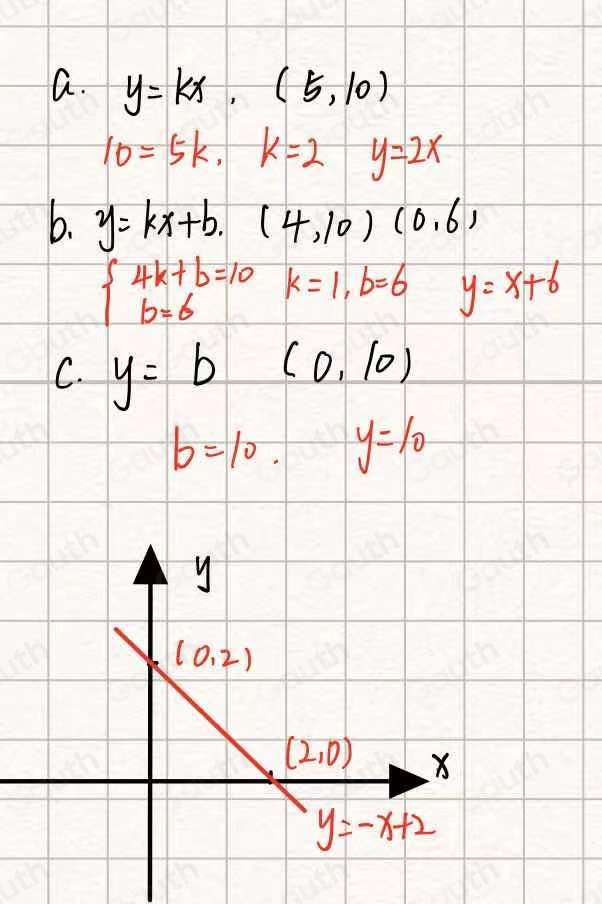 a. y=kx. (5,10)
10=5k, k=2 y=2x
b. y=kx+b. (4,10) (0,6)
{4k+b=10 k=1, b=6 y=x+6
b=6
c. y= b (0,10)
b=10. y=10
y
(0,2)
(2,0) x
y=-x+2